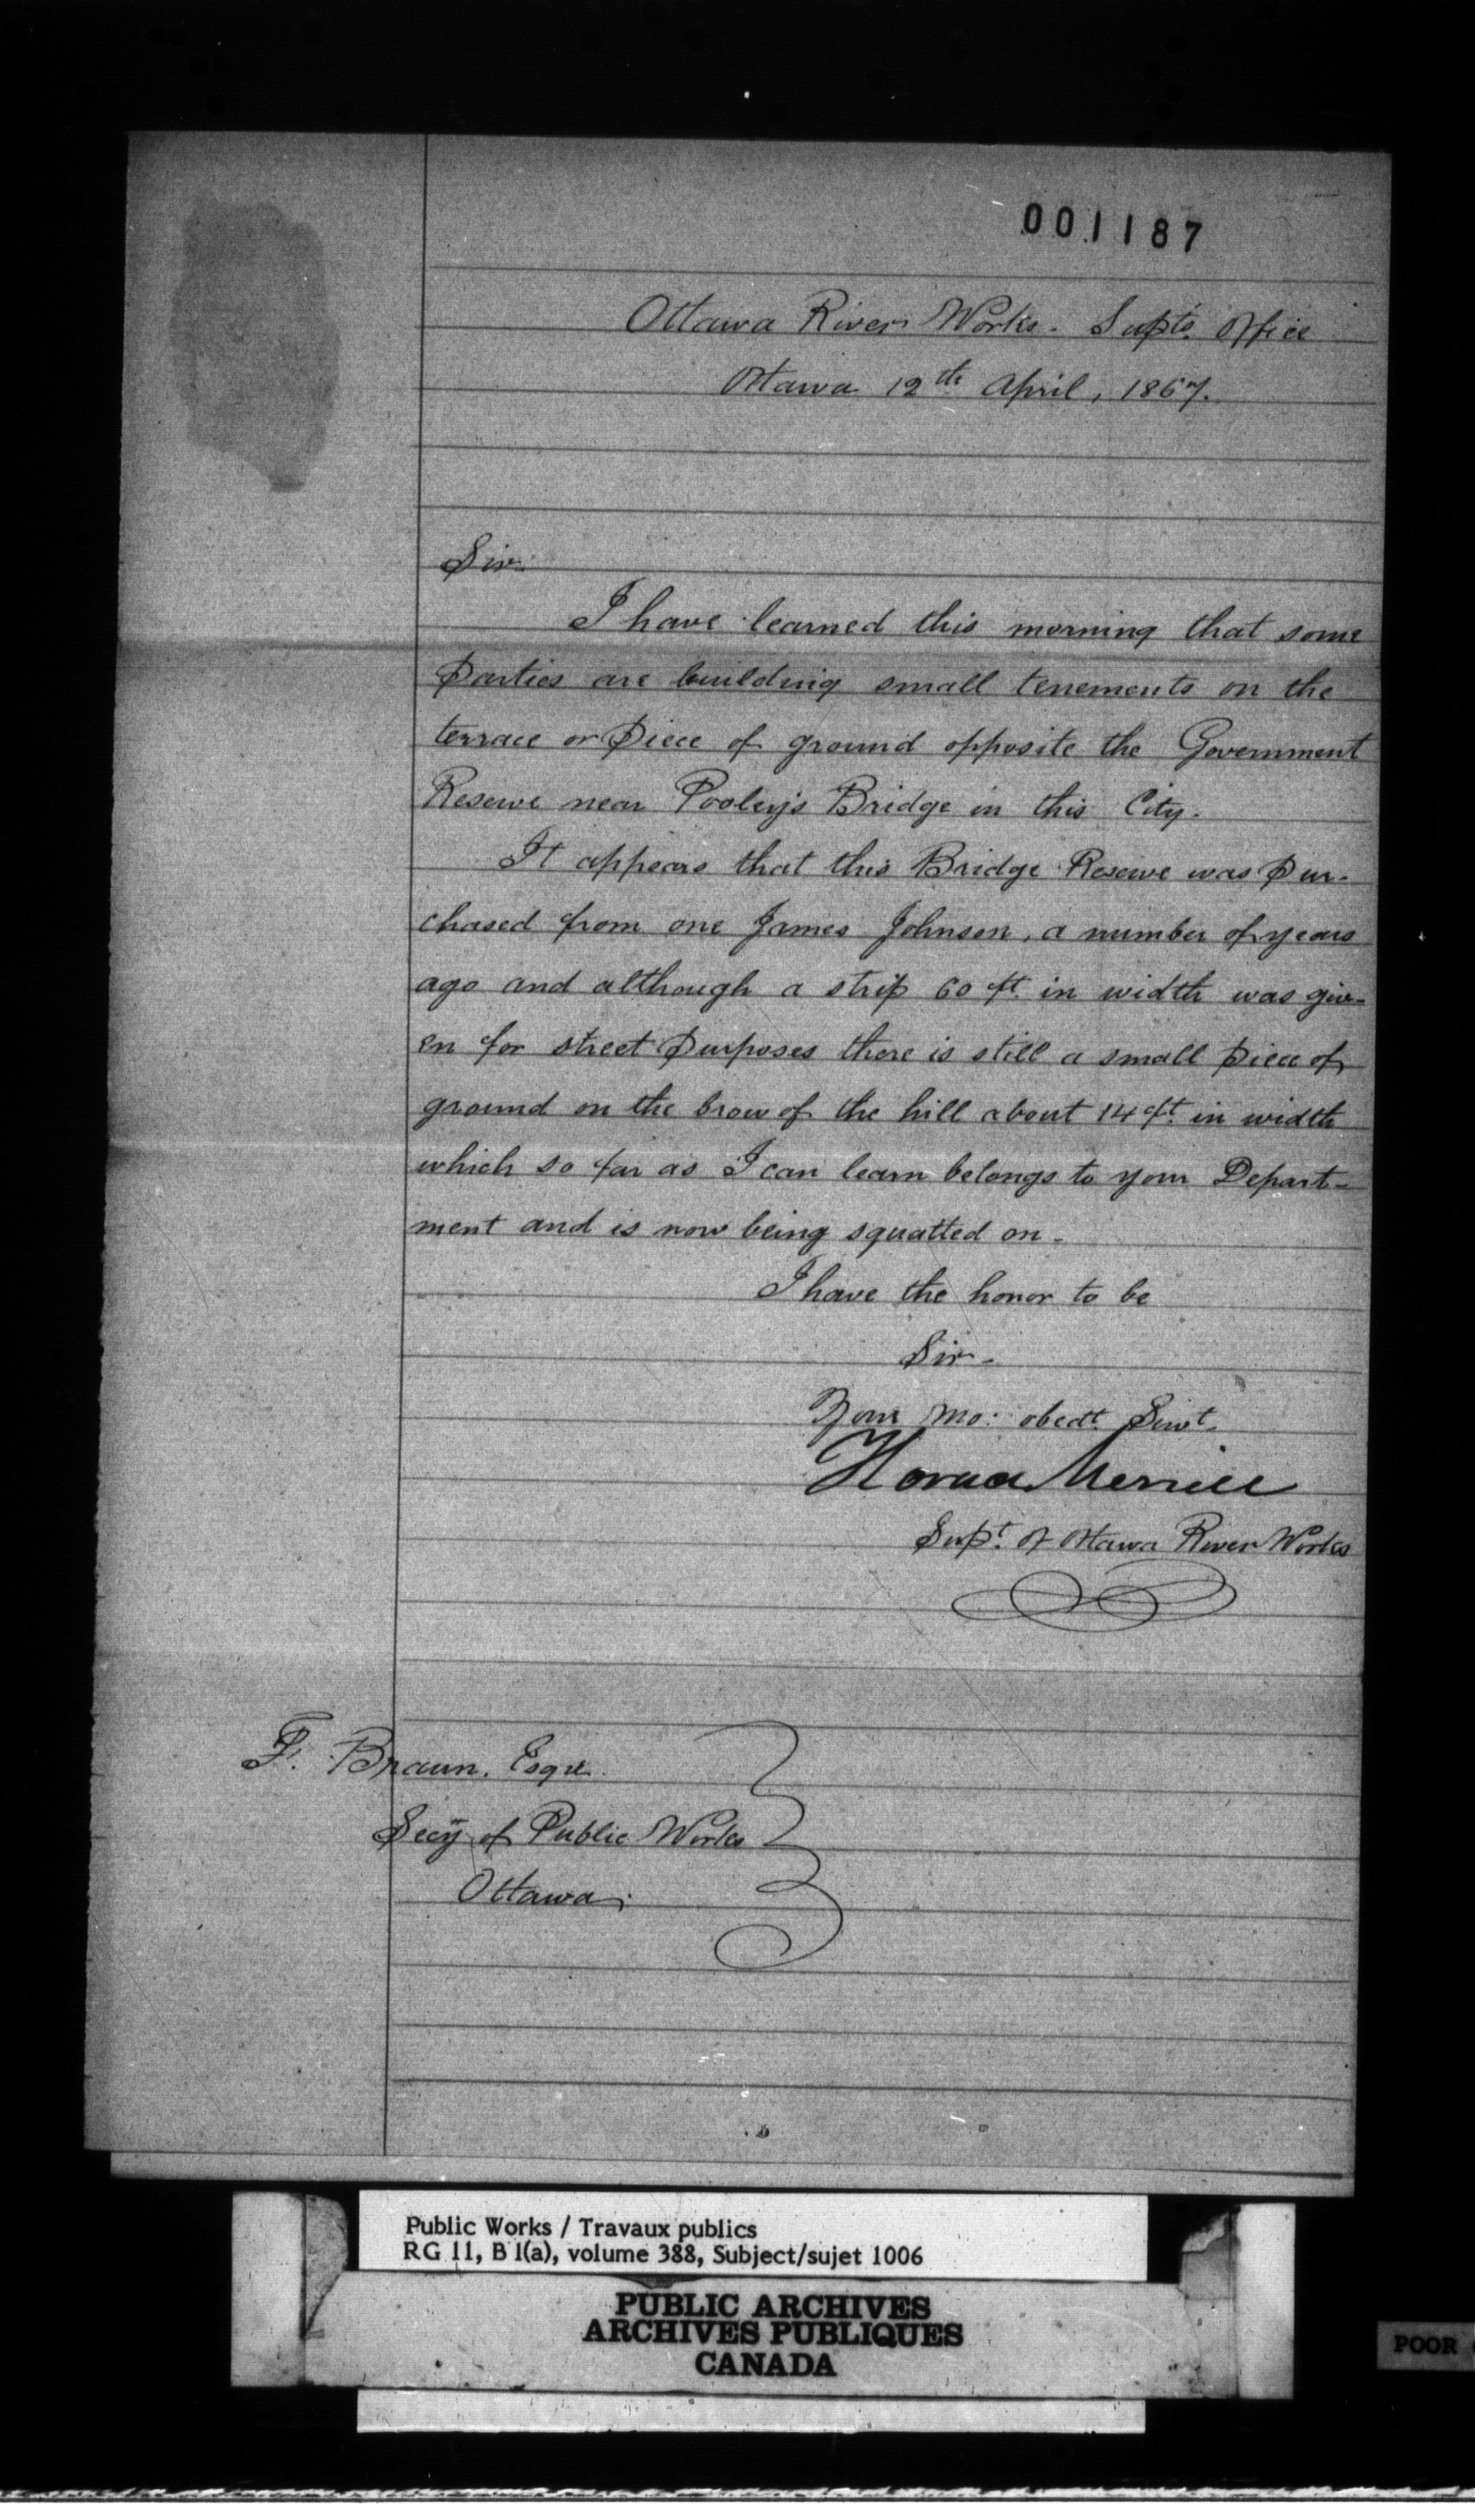 001187
Ottawa River Works. Supts. Office
Ottawa 12th April, 1867.
Sir.
I have learned this morning that some
parties are building small tenements on the
terrace or piece of ground opposite the Government
Reserve near Pooley's Bridge in this City.
It appears that this Bridge Reserve was pur-
chased from one James Johnson, a number of years
ago and although a strip 60 ft. in width was giv-
en for street purposes there is still a small piece of
ground on the brow of the hill about 14 ft. in width
which so far as I can learn belongs to your Depart-
ment and is now being squatted on.
I have the honor to be
Sir.
Your Mo: obedt. Servt.
Horace Merrill
Supt. of Ottawa River Works
F. Braun. Esqre.
Secy of Public Works
Ottawa.
Public Works / Travaux publics
RG 11, B 1(a), volume 388, Subject/sujet 1006
PUBLIC ARCHIVES
ARCHIVES PUBLIQUES
CANADA
POOR